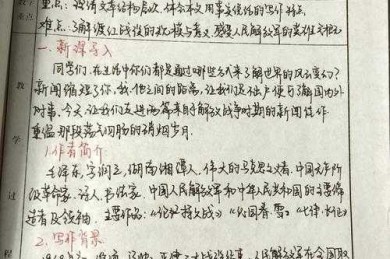 重点：理清文章结构层次，体会本文用事实说话的写作特点
难点：了解渡江战役的欢快与意义，感受人民解放军的英雄气概
一、新课导入
同学们，在生活中你们都是通过哪些方式来了解世界的风云变幻？
新闻缩短了你、我、他之间的距离，让我们足不出户便可了解国内外
时事。今天，让我们走进两篇来自于解放战争时期的新闻佳作
重温那段荡气回肠的硝烟岁月。
1.作者简介
毛泽东，字润之，湖南湘潭人，伟大的马克思主义者，中国无产阶
级革命家、诗人、书法家，中国人民解放军和中华人民共和国的主要缔
造者及领袖。主要作品：《论持久战》《沁园春·雪》《七律·长征》
2.写作背景
教学过程